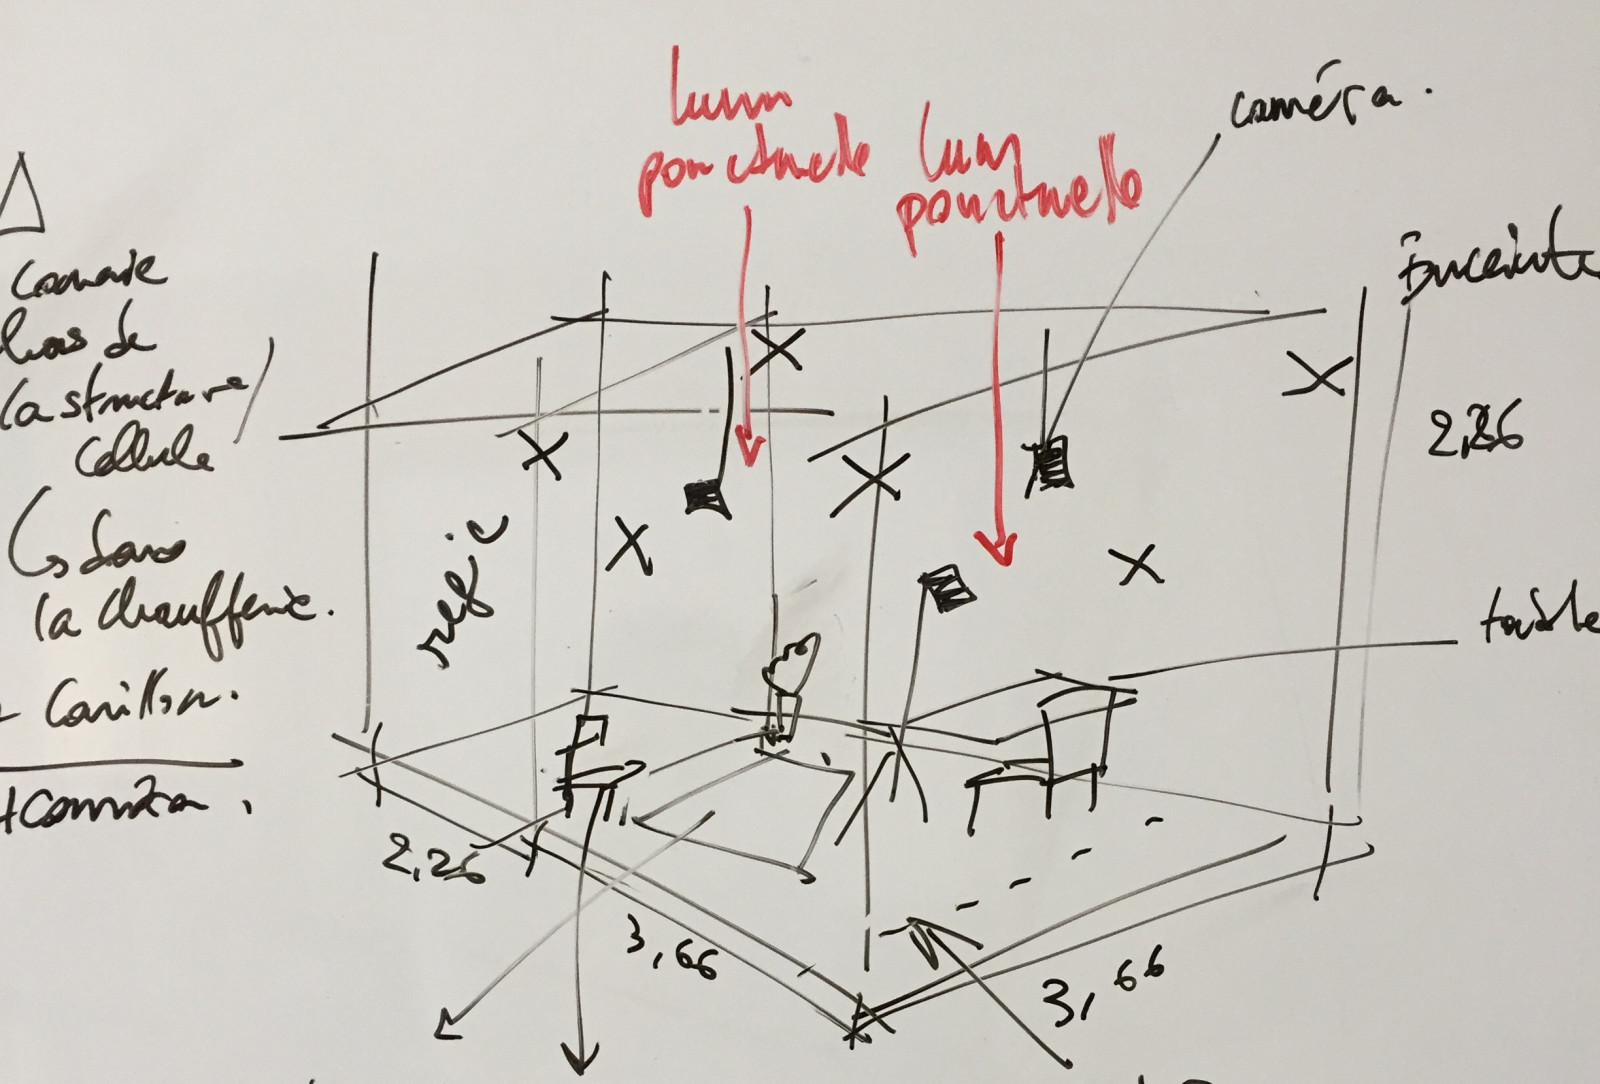 lum
ponctuelle
lum
ponctuelle
caméra.
hors de
la structure/
cellule
↳ dans
la chaufferie.
régie
Enceinte
2,26
table
2,26
3,66
3,66